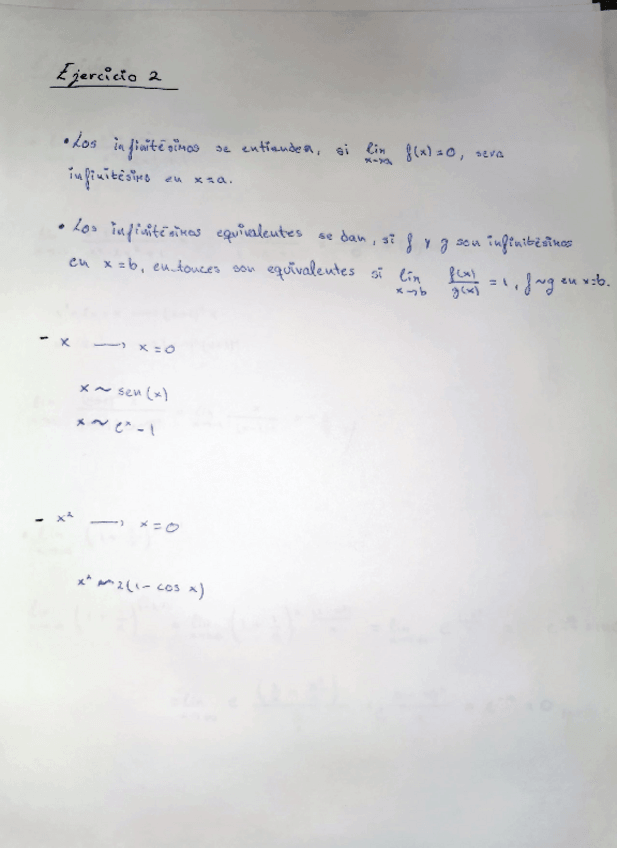 Ejercicio 2
• Los infinitésimos se entienden, si lim x→a f(x)=0, será
infinitésimo en x=a.
• Los infinitésimos equivalentes se dan, si f y g son infinitésimos
en x=b, entonces son equivalentes si lim x→b f(x)/g(x) = 1, f~g en x=b.
- x → x=0
x ~ sen(x)
x ~ eˣ - 1
- x² → x=0
x² ~ 2(1 - cos x)